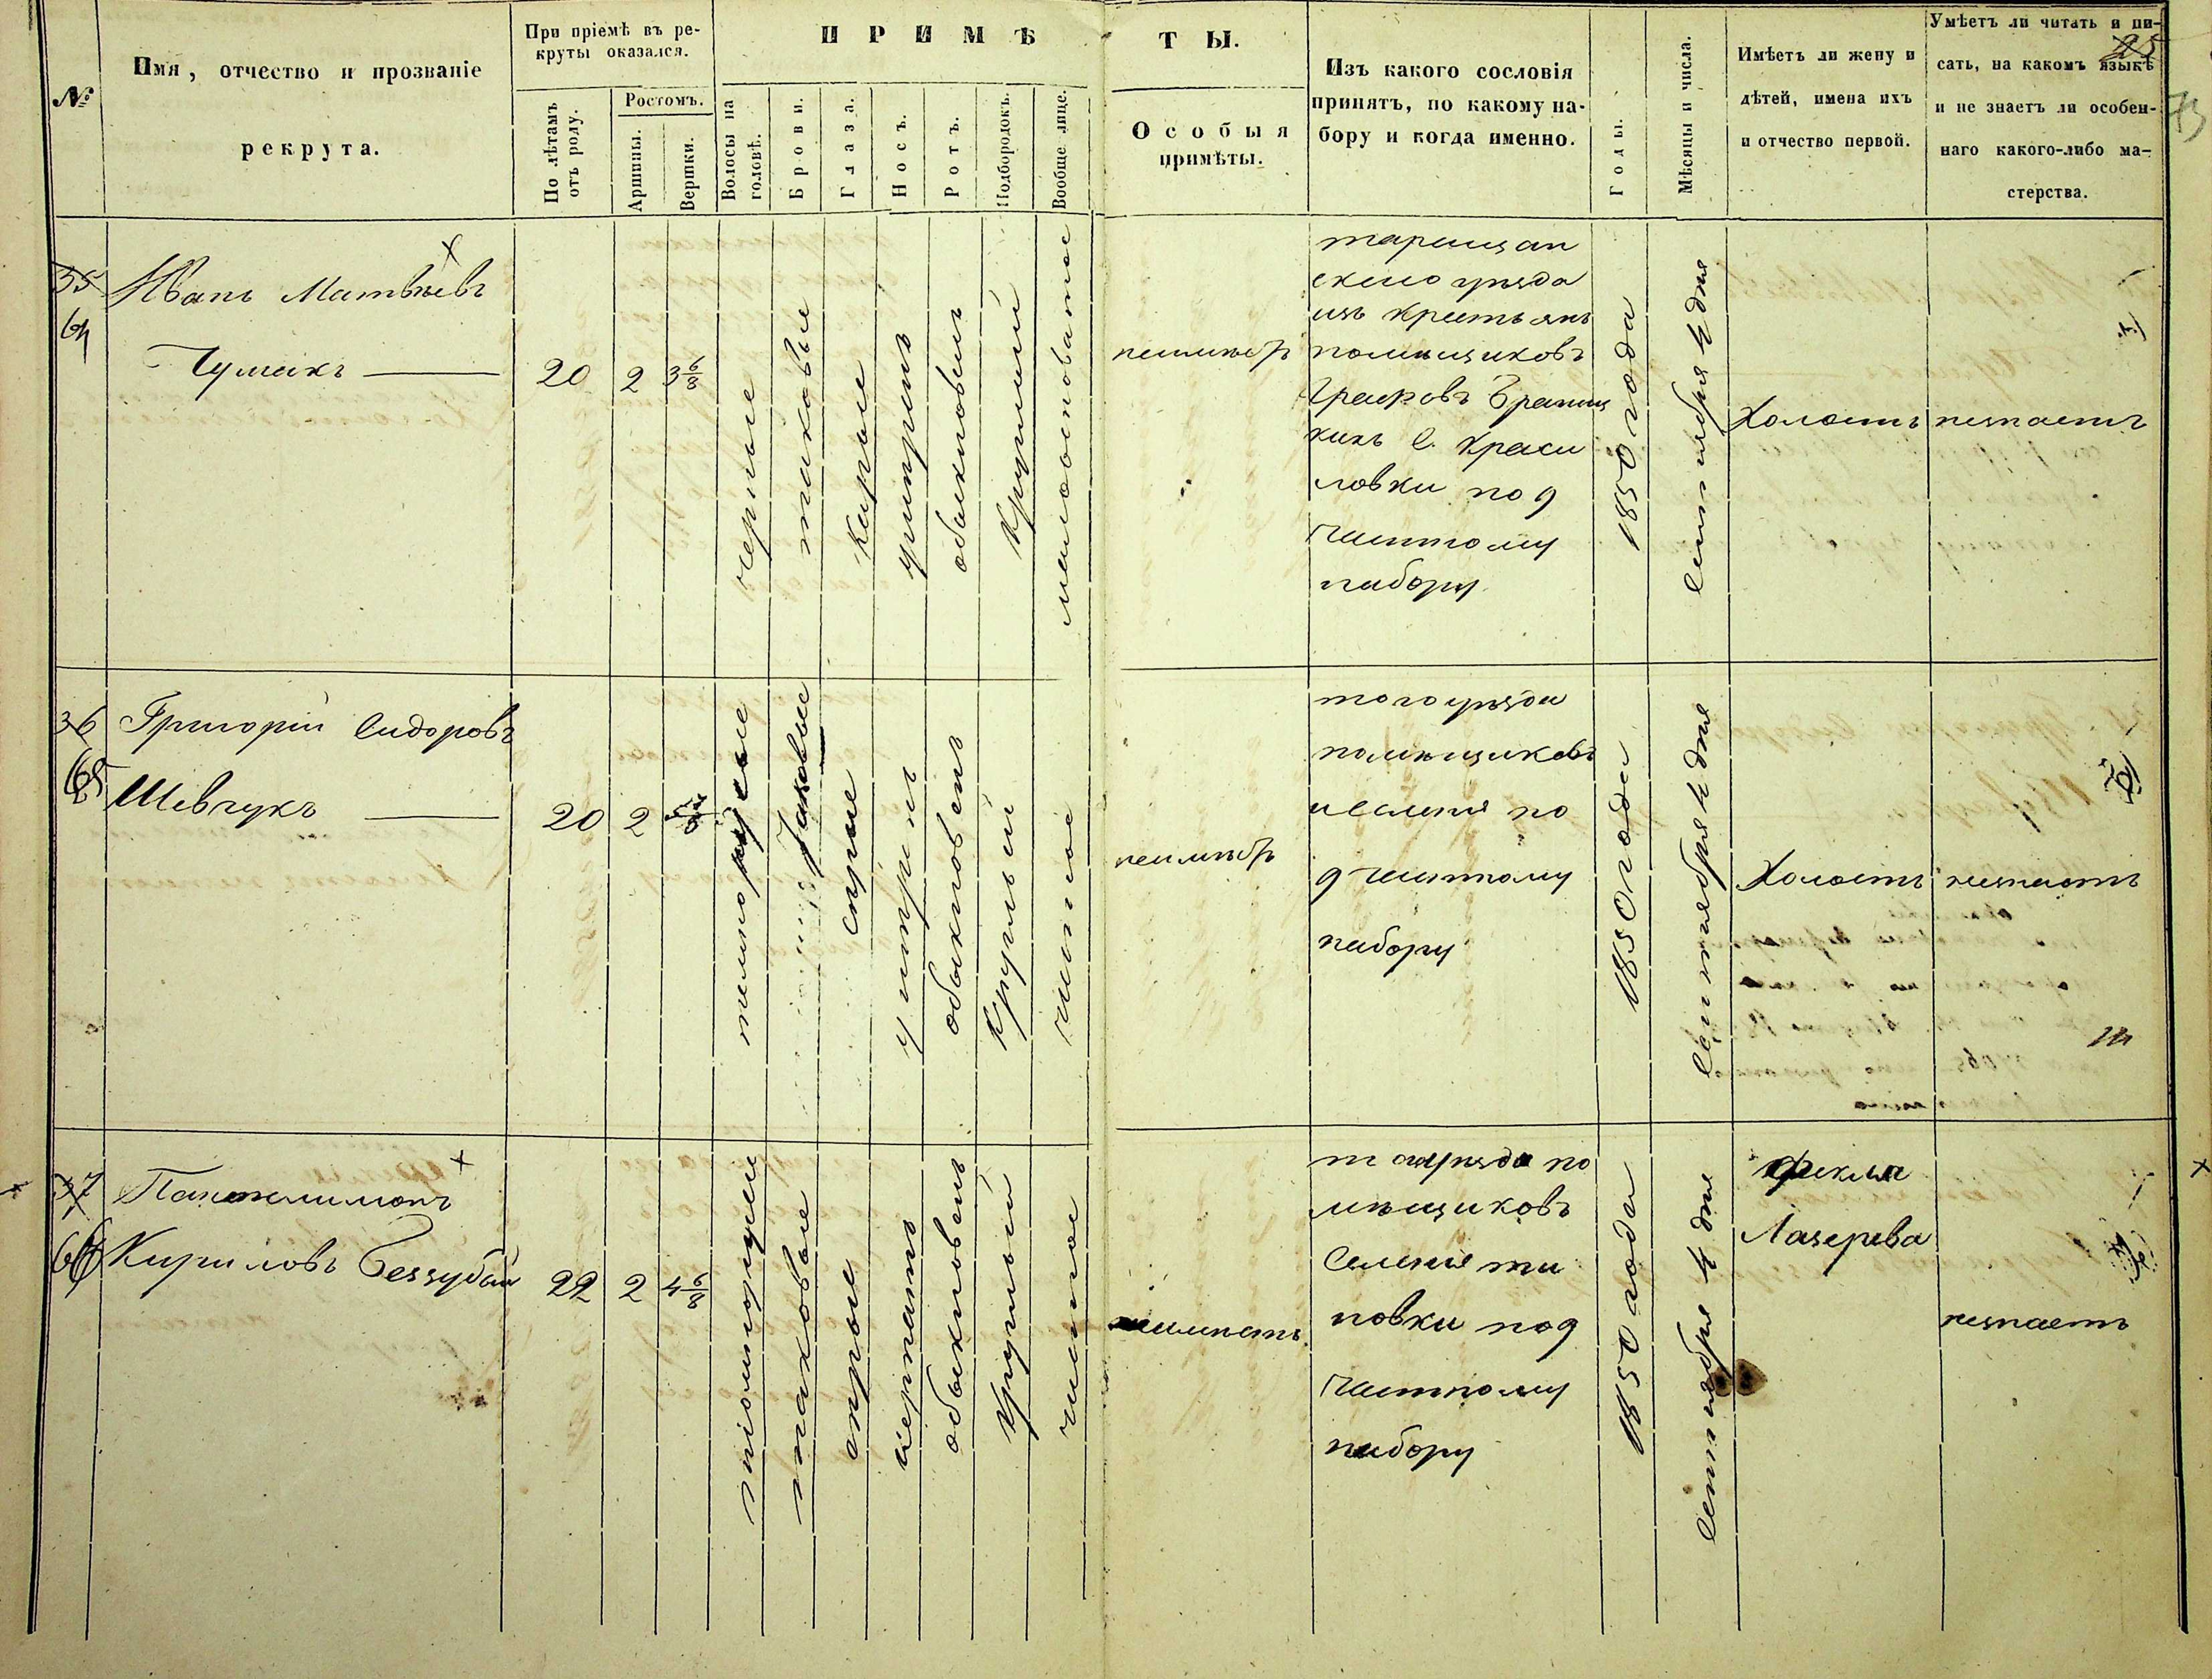 25
73
№
Имя, отчество и прозваніе
рекрута.
При пріемѣ въ ре-
круты оказался.
По лѣтамъ
отъ роду.
Ростомъ.
Аршины.
Вершки.
ПРИМѢ
ТЫ.
Волосы на
головѣ.
Брови.
Глаза.
Носъ.
Ротъ.
Подбородокъ.
Вообще лице.
Особыя
примѣты.
Изъ какого сословія
принятъ, по какому на-
бору и когда именно.
Годы.
Мѣсяцы и числа.
Имѣетъ ли жену и
дѣтей, имена ихъ
и отчество первой.
Умѣетъ ли читать и пи-
сать, на какомъ языкѣ
и не знаетъ ли особен-
наго какого-либо ма-
стерства.
35
64
Иванъ Матвѣевъ
Чумакъ
20
2
3 6/8
черные
таковые
карые
обыкновенъ
круглый
неимѣетъ
таращан
скаго уезда
изъ крестьянъ
помѣщиковъ
Графовъ Браниц
кихъ С. Краси
ловки по 9
частному
набору
1850 года
Сентября 4 дня
Холостъ
незнаетъ
36
65
Григорій Сидоровъ
Шевчукъ
20
2
темнорусые
таковые
серые
обыкновенъ
круглый
чистое
неимѣетъ
того уезда
помѣщиковъ
и селенія по
9 частному
набору
1850 года
Сентября 4 дня
Холостъ
незнаетъ
37
66
Пантелимонъ
Кириловъ Беззубый
22
2
4 6/8
таковые
серые
обыкновенъ
круглый
чистое
неимѣетъ
то уезда по
мѣщиковъ
Селенія ти
новки по 9
частному
набору
1850 года
Сентября 4 дня
Фекла
Лазерева
незнаетъ